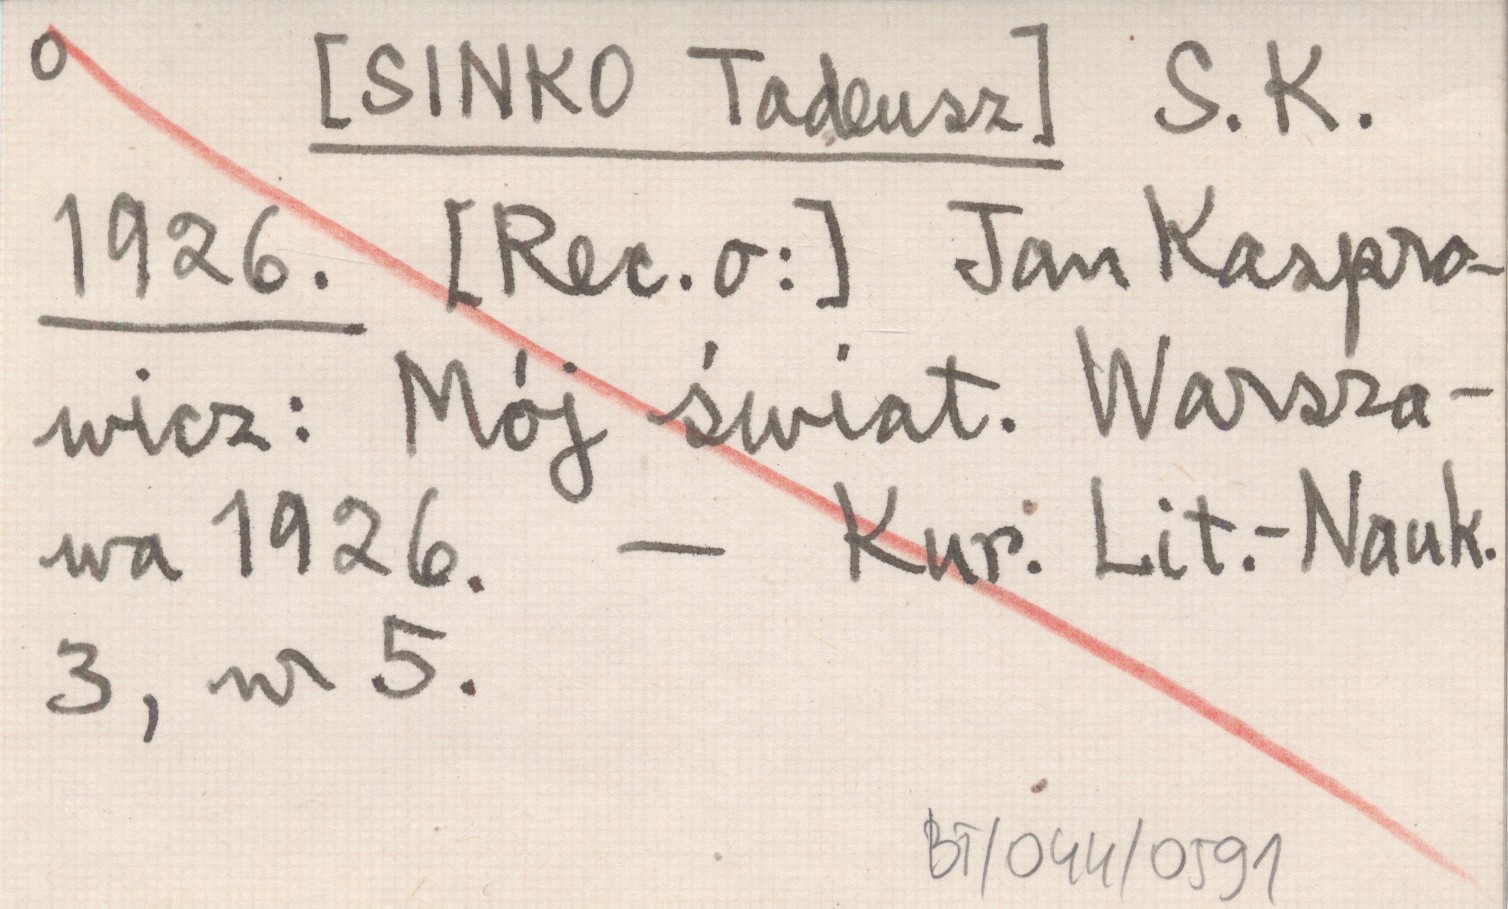 o [SINKO Tadeusz] S.K.
1926. [Rec. o:] Jan Kaspro-
wicz: Mój świat. Warsza-
wa 1926. — Kur. Lit.-Nauk.
3, nr 5.
BT/044/0591